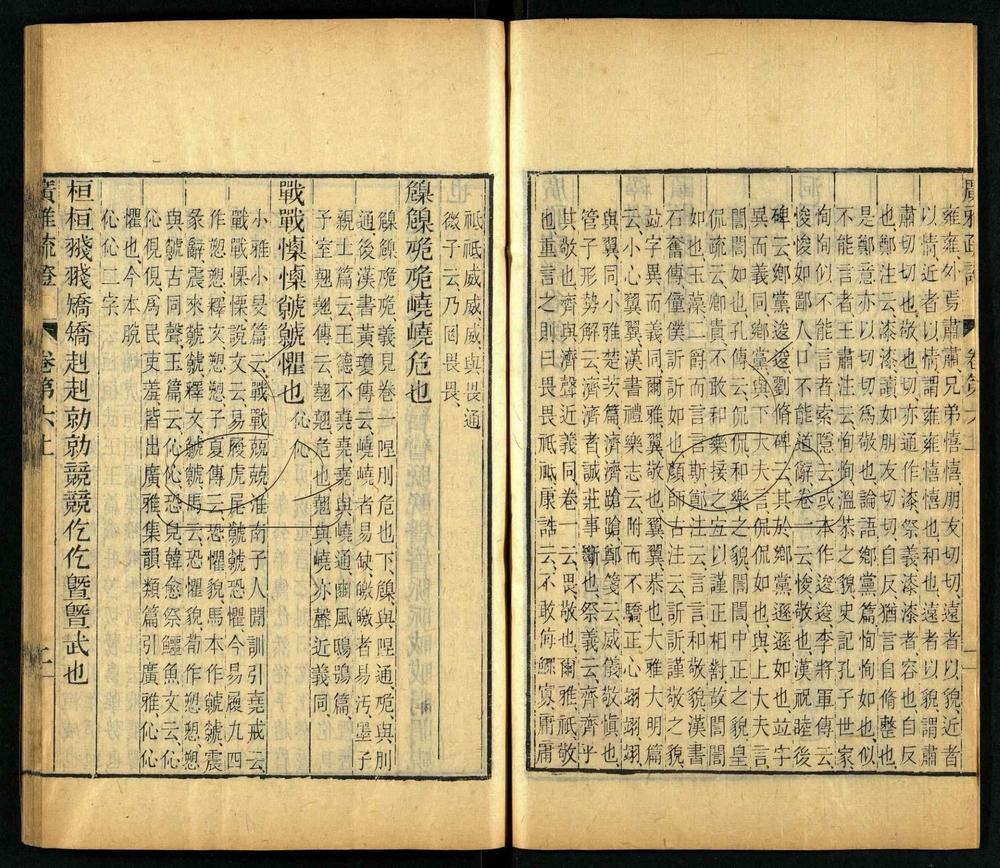 廣雅疏證　卷第六上　一
雍雍外焉肅肅兄弟憘憘朋友切切遠者以貌近者
以情近者以情謂雍雍憘憘也和也遠者以貌謂肅
肅切切也敬也切切亦通作漆祭義漆漆者容也自反
也鄭注云漆漆讀如朋友切切自反猶言自脩整也
是鄭意亦以切切為敬也論語鄉黨篇恂恂如也似
不能言者王肅注云恂恂溫恭之貌史記孔子世家
恂恂似不能言者索隱云或本作逡逡李將軍傳云
悛悛如鄙人口不能道辭卷一云悛敬也漢祝睦後
碑云鄉黨逡逡劉脩碑云其於鄉黨遜遜如也竝字
異而義同鄉黨與下大夫言侃侃如也與上大夫言
誾誾如也孔傳云侃侃和樂之貌誾誾中正之貌皇
侃疏云卿貴不敢和樂接之宜以謹正相對故誾誾
如也玉藻二爵而言言斯鄭注云言言和敬貌漢書
石奮傳僮僕訢訢如也顏師古注云訢訢謹敬之貌
竝字異而義同爾雅翼敬也翼翼恭也大雅大明篇
云小心翼翼漢書禮樂志云附而不驕正心翊翊翊
與翼同小雅楚茨篇濟濟蹌蹌鄭箋云威儀敬慎也
管子形勢解云濟濟者誠莊事斷也祭義云齊齊乎
其敬也齊與濟聲近義同卷一云畏敬也爾雅祇敬
也重言之則曰畏畏祇祇康誥云不敢侮鰥寡庸庸
祗祗威威威與畏通
微子云乃罔畏畏
䫥䫥卼卼嶢嶢危也
䫥䫥卼卼義見卷一隉刖危也下䫥與隉通卼與刖
通後漢書黃瓊傳云嶢嶢者易缺皦皦者易汚墨子
親士篇云王德不堯堯堯與嶢通豳風鴟鴞篇
予室翹翹傳云翹翹危也翹與嶢亦聲近義同
戰戰慄慄虩虩懼也
小雅小旻篇云戰戰兢兢淮南子人閒訓引堯戒云
戰戰慄慄說文云易履虎尾虩虩恐懼今易履九四
作愬愬釋文愬愬子夏傳云恐懼貌馬本作虩虩震
彖辭震來虩虩釋文虩虩馬云恐懼貌荀作愬愬愬
與虩古同聲玉篇云伈伈恐皃韓愈祭鱷魚文云伈
伈俔俔為民吏羞皆出廣雅集韻類篇引廣雅伈伈
懼也今本脫
伈伈二字
桓桓㺜㺜矯矯赳赳勍勍競競仡仡暨暨武也
廣雅疏證　卷第六上　二
伈伈